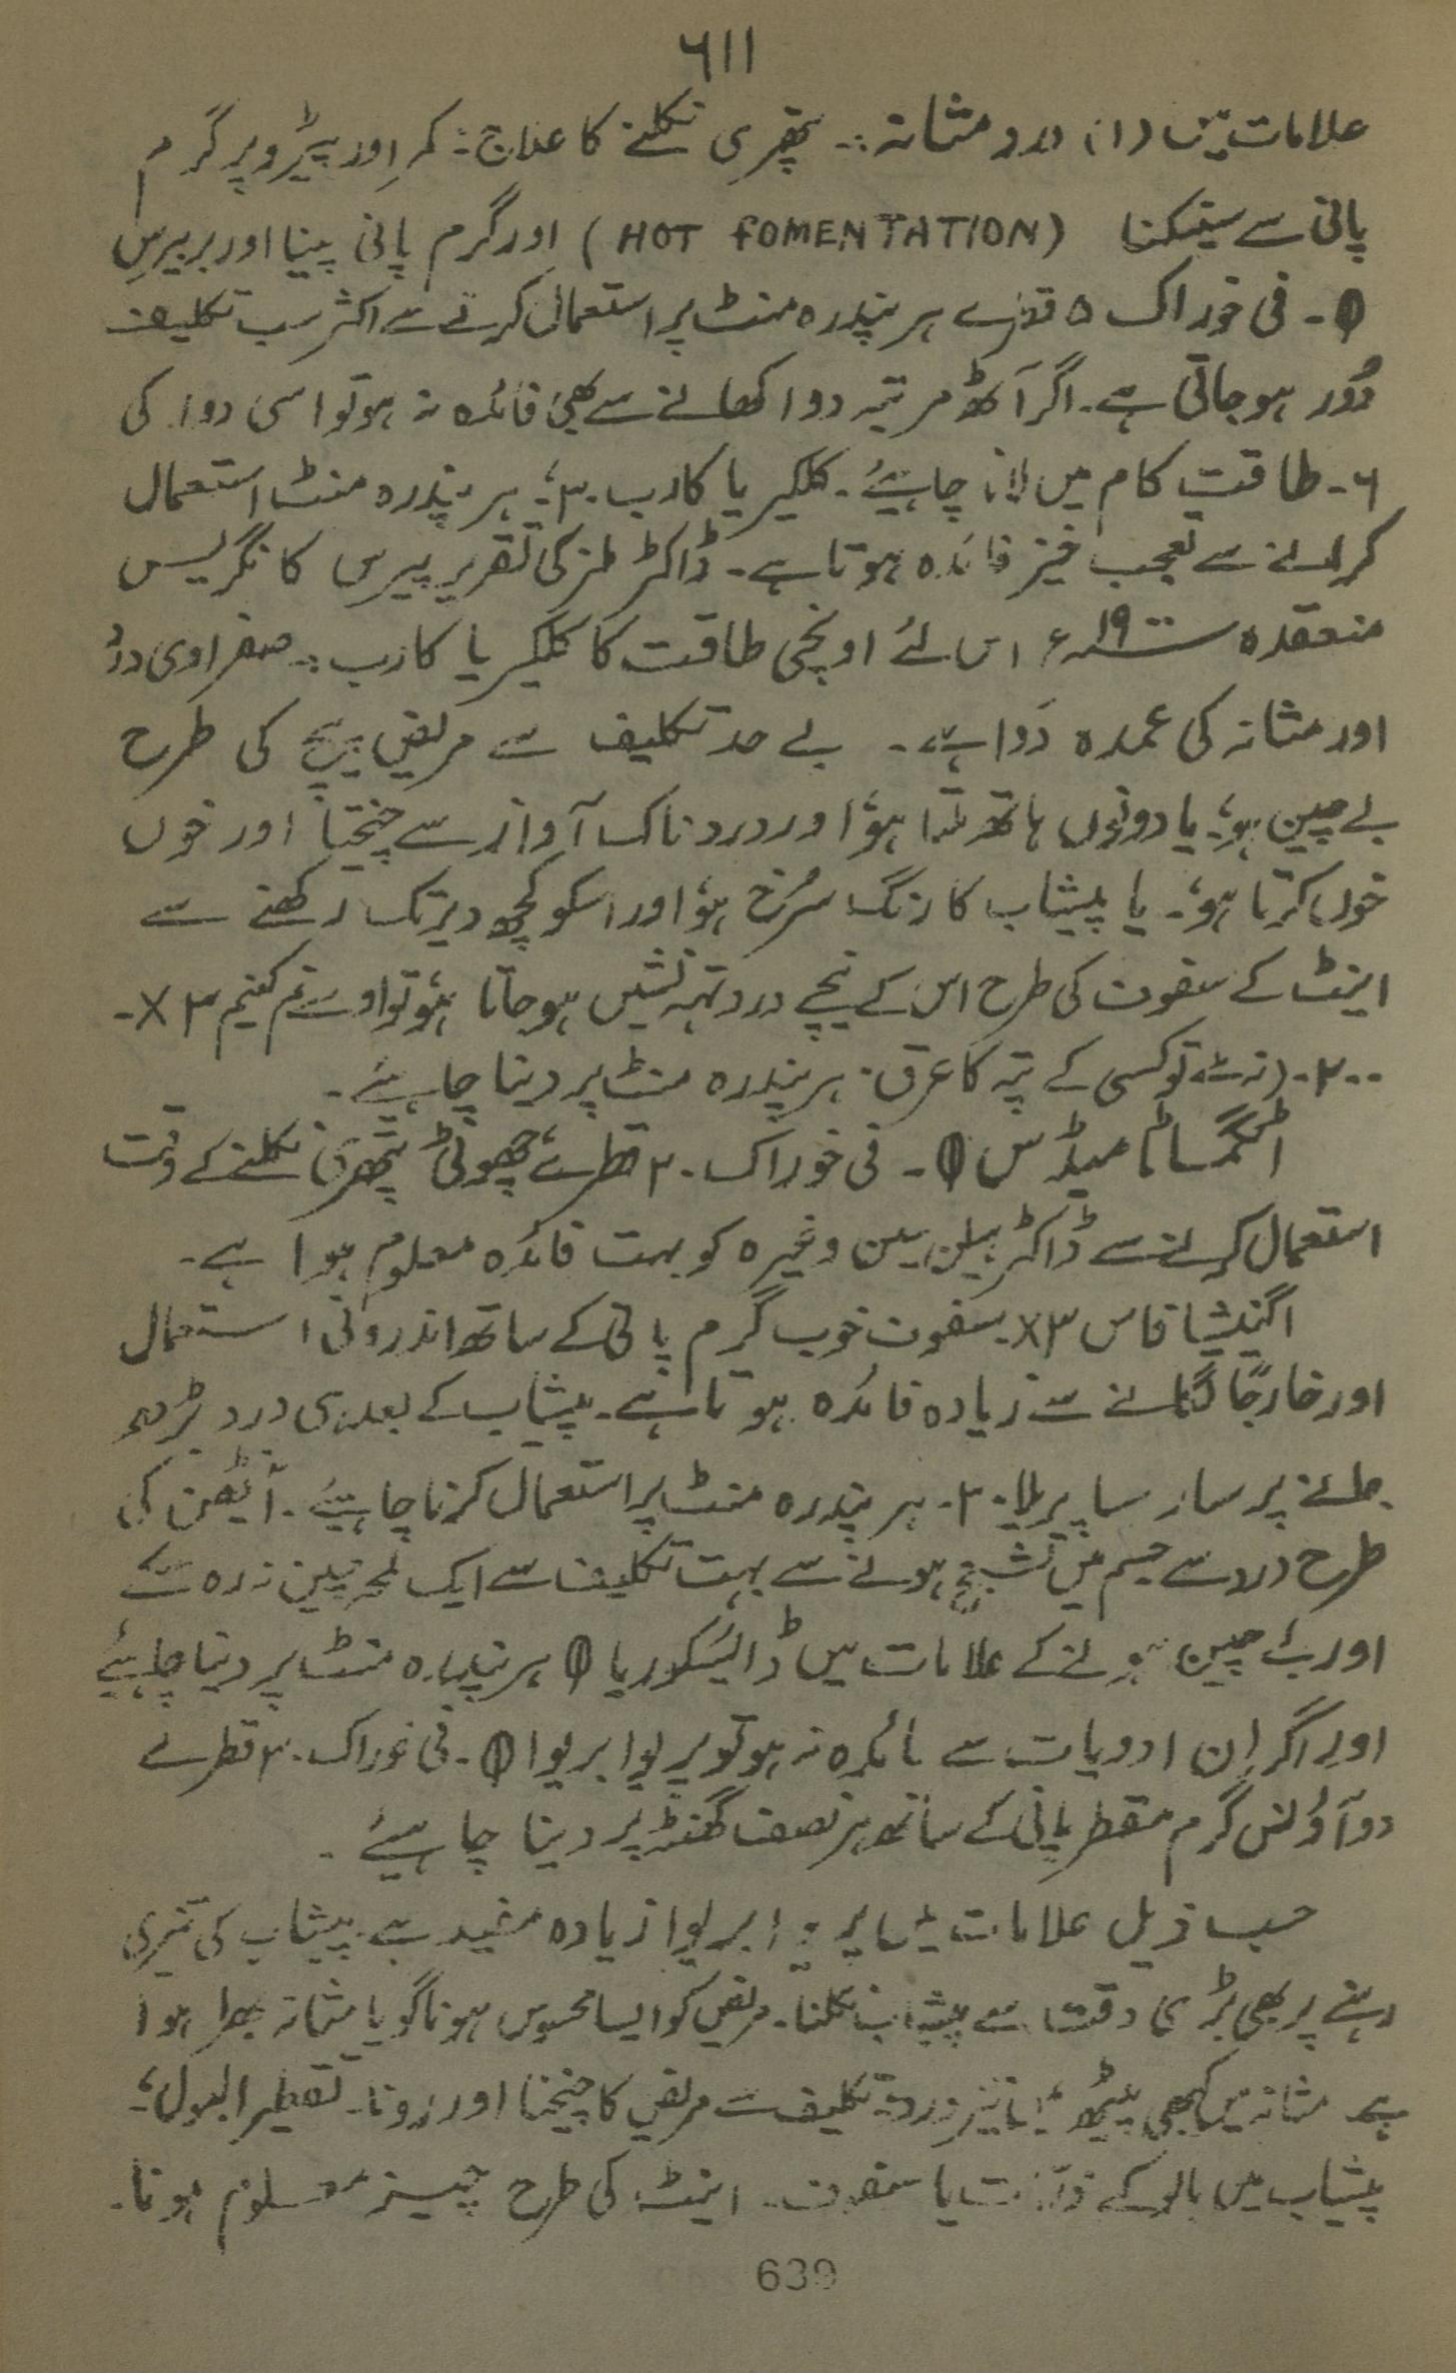 ٦١١
علامات میں (۱) درد مثانہ :۔ پتھری نکلنے کا علاج : کمر اور پیڑو پر گرم
پانی سے سینکنا (HOT FOMENTATION) اور گرم پانی پینا اور بربیرس
θ ۔ فی خوراک ۵ قطرے ہر پندرہ منٹ پر استعمال کرنے سے اکثر سب تکلیف
دُور ہو جاتی ہے۔ اگر آٹھ مرتبہ دوا کھانے سے بھی فائدہ نہ ہو تو اسی دوا کی
۶۔ طاقت کام میں لانا چاہیئے۔ کلکیریا کارب ۳۰؛ ہر پندرہ منٹ استعمال
کرانے سے تعجب خیز فائدہ ہوتا ہے۔ ڈاکٹر کی تقریر پیرس کانگریس
منعقدہ ۱۹۰۰ء اس لئے اونچی طاقت کا کلکیریا کارب :۔ صفراوی درد
اور مثانہ کی عمدہ دَوا ہے۔ بے حد تکلیف سے مریض پیچ کی طرح
بے چین ہو؛ یا دونوں ہاتھ ملتا ہؤا اور دردناک آواز سے چیختا اور خوں
خوں کرتا ہو؛۔ یا پیشاب کا رنگ سُرخ ہو اور اسکو کچھ دیر تک رکھنے سے
اینٹ کے سفوف کی طرح اس کے نیچے درد تہہ نشیں ہو جاتا ہو تو اوسیمم کینم ۳ X۔
۲۰۰۔ توکسی کے پتہ کا عرق۔ ہر پندرہ منٹ پر دینا چاہیئے۔
اسٹگماٹا میڈس θ ۔ فی خوراک ۲۰ قطرے چھوٹی پتھری نکلنے کے وقت
استعمال کرنے سے ڈاکٹر ہیلن سین وغیرہ کو بہت فائدہ معلوم ہوا ہے۔
میگنیشیا فاس ۳X سفوف خوب گرم پانی کے ساتھ اندرونی استعمال
اور خارجًا لگانے سے زیادہ فائدہ ہوتا ہے۔ پیشاب کے بعد ہی درد بڑھ
جانے پر سارساپریلا ۳۰۔ ہر پندرہ منٹ پر استعمال کرنا چاہیئے۔ آینٹھن کی
طرح درد سے جسم میں تشنج ہونے سے بہت تکلیف سے ایک لمحہ چین نہ رہ سکے
اور بے چین ہونے کے علامات میں ڈایسکوریا θ ہر پندرہ منٹ پر دینا چاہیئے
اور اگر ان ادویات سے فائدہ نہ ہو تو پریرا بریوا θ ۔ فی خوراک ۳۰ قطرے
دو آؤنس گرم مقطر پانی کے ساتھ ہر نصف گھنٹہ پر دینا چاہیئے۔
حسب ذیل علامات میں پریرا بریوا زیادہ مفید ہے۔ پیشاب کی تیزی
رہنے پر بھی بڑی دقت سے پیشاب نکلنا۔ مریض کو ایسا محسوس ہونا گویا مثانہ بھرا ہوا
ہے مثانہ میں کبھی تیز درد تکلیف سے مریض کا چیخنا اور رونا۔ تقطیر البول؛
پیشاب میں بالو کے ذرّات یا سفوف۔ اینٹ کی طرح چیز معلوم ہونا۔
639